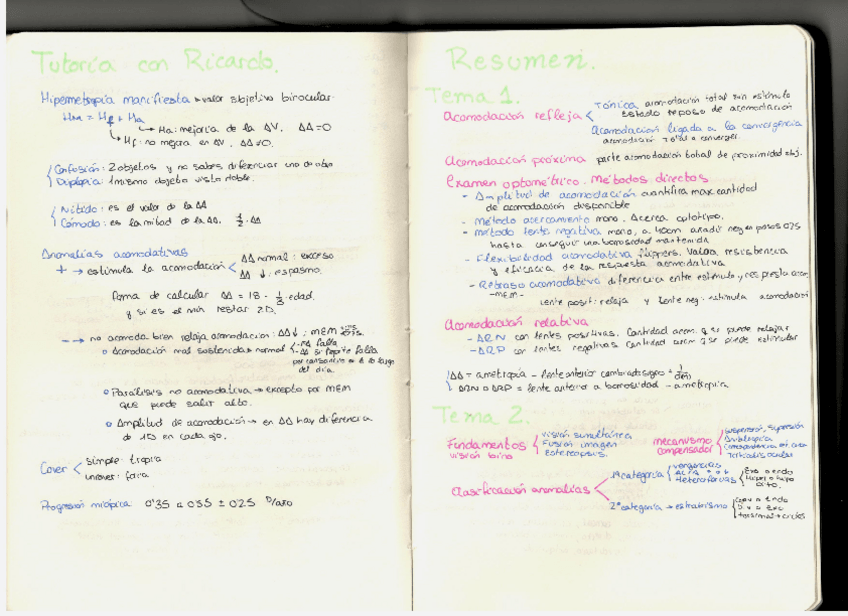 Tutoría con Ricardo.
Hipermetropía manifiesta → valor objetivo binocular.
Hm = Hf + Ha
→ Ha: mejoría de la AV. ΔA=0
→ Hf: no mejora en AV. ΔA≠0.
Confusión: 2 objetos y no sabes diferenciar uno de otro
Diplopía: 1 mismo objeto visto doble.
Nítido: es el valor de la AA
Cómodo: es la mitad de la AA. 1/2 · AA
Anomalías acomodativas
+ → estimula la acomodación
AA normal: exceso
AA ↓: espasmo.
Forma de calcular AA = 18 - 1/3 edad.
y si es el min restar 2D.
- → no acomoda bien relaja acomodación: AA↓; MEM
Acomodación mal sostenida → normal
- AA si repite falla
por cansancio o a lo largo
del día.
Parálisis no acomodativa → excepto por MEM
que puede salir alto.
Amplitud de acomodación → en AA hay diferencia
de 1D en cada ojo.
Cover
simple: tropia
uncover: foria
Progresión miópica: 0'35 a 0'55 ± 0'25 D/año
Resumen.
Tema 1.
Acomodación refleja
Tónica acomodación total sin estímulo
estado reposo de acomodación
Acomodación ligada a la convergencia
acomodación total a converger.
Acomodación próxima parte acomodación total de proximidad obj.
Examen optométrico. Métodos directos
- Amplitud de acomodación cuantifica max cantidad
de acomodación disponible
- Método acercamiento mono. Acerca optotipo.
- Método lente negativa mono, a 40cm añadir neg en pasos 0'25
hasta conseguir una borrosidad mantenida
- Flexibilidad acomodativa flippers. Valora resistencia
y eficacia de la respuesta acomodativa
- Retraso acomodativo diferencia entre estímulo y respuesta acom.
-MEM-
lente posit: relaja y lente neg: estimula acomodación
Acomodación relativa
- ARN con lentes positivas. Cantidad acom. q se puede relajar
- ARP con lentes negativas cantidad acom q se puede estimular
AA = ametropía - lente anterior cambiada signo +
ARN o ARP = lente anterior a borrosidad - ametropía
Tema 2.
Fundamentos
visión bino
visión simultánea
Fusión imagen
Estereopsis.
mecanismo
compensador
supresión
Ambliopía
Tortícolis ocular
Clasificación anomalías
1ª categoría
vergencias
Heteroforias
Exo o endo
Hiper o hipo
2ª categoría → estrabismo